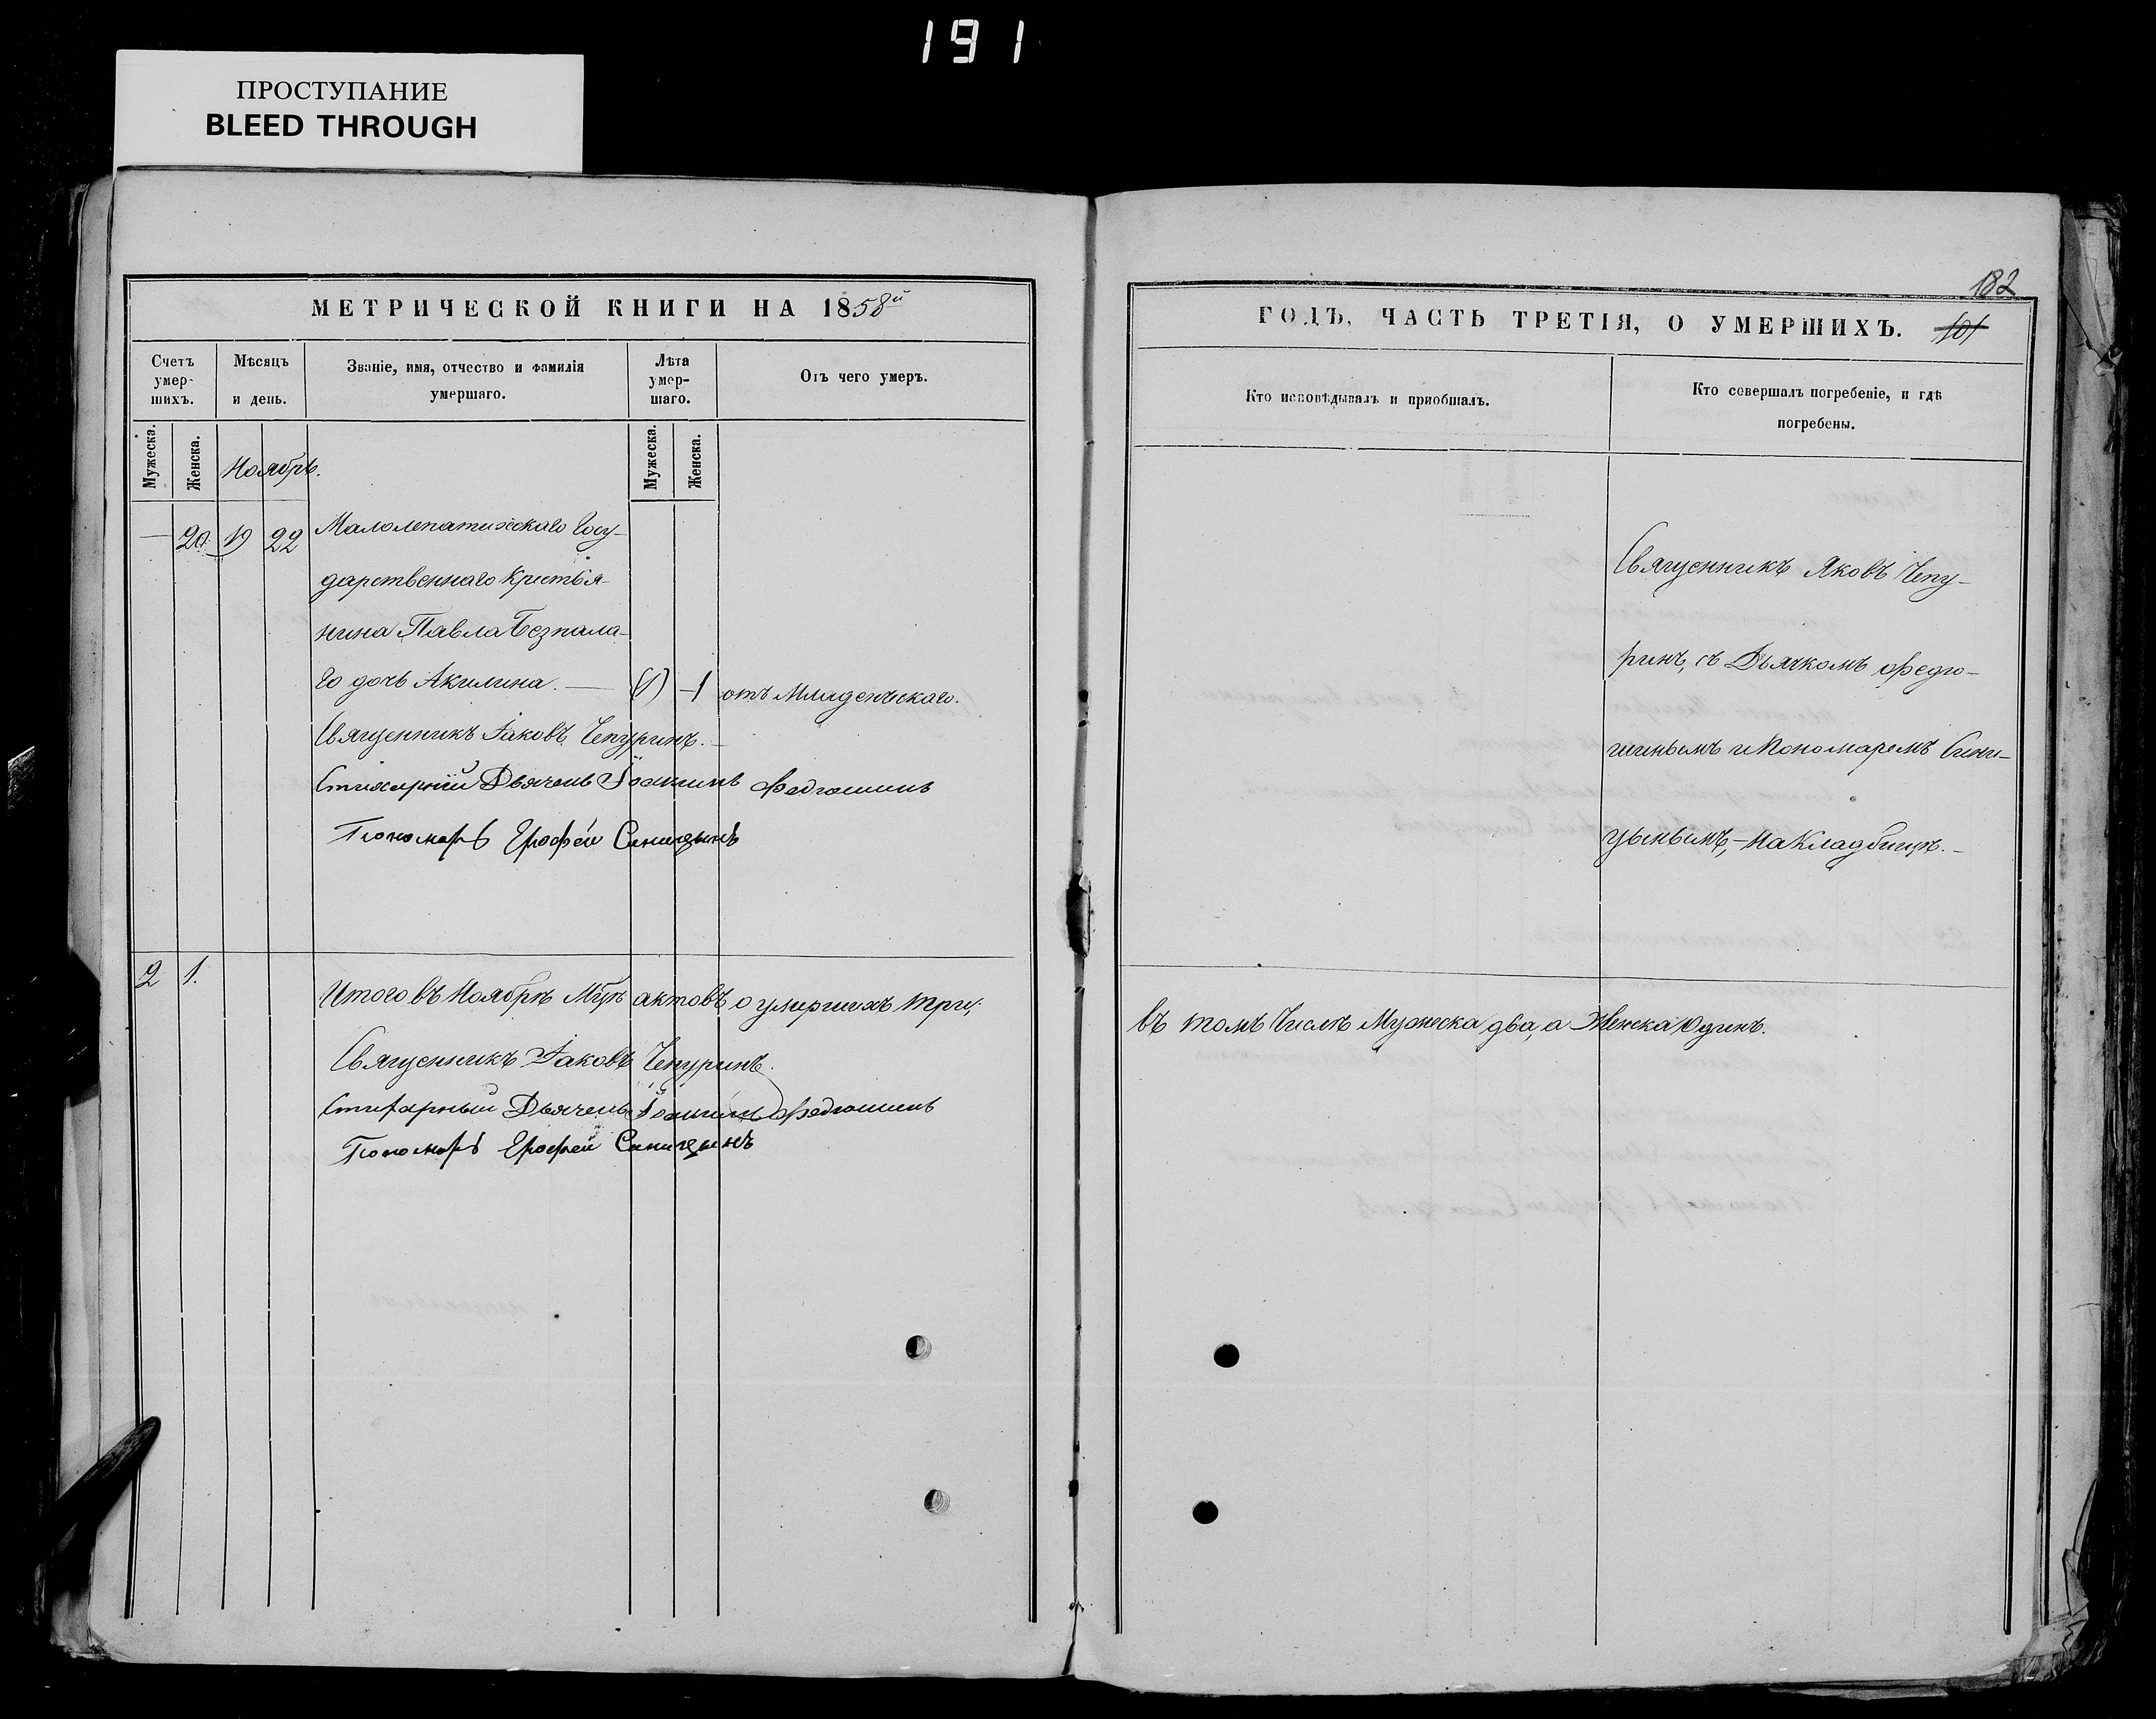 191
ПРОСТУПАНИЕ
BLEED THROUGH
МЕТРИЧЕСКОЙ КНИГИ НА 1858й
Счетъ умер-шихъ.
Мѣсяцъ и день.
Званіе, имя, отчество и фамилія умершаго.
Лѣта умер-шаго.
Отъ чего умеръ.
Мужеска.
Женска.
Ноябрь.
Мужеска.
Женска.
— 20 19 22 Малолепатихскаго Госу-
дарственнаго Крестья-
нина Павла Безпала-
го дочь Акилина. — 1 отъ Младенческаго.
Священникъ Іаковъ Чепуринъ.
Стихарный Дьячекъ Іоаннъ Федюшинъ
Пономарь Ерофей Синицынъ
2 1.
Итого въ Ноябрѣ М-цѣ актовъ о умершихъ три,
Священникъ Іаковъ Чепуринъ.
Стихарный Дьячекъ Іоаннъ Федюшинъ
Пономарь Ерофей Синицынъ
182
ГОДЪ, ЧАСТЬ ТРЕТІЯ, О УМЕРШИХЪ. 101
Кто исповѣдывалъ и пріобщалъ.
Кто совершалъ погребеніе, и гдѣ погребены.
Священникъ Яковъ Чепу-
ринъ, съ Дьячкомъ Федю-
шинымъ и Пономаремъ Сини-
цынымъ,— на Кладбищѣ.—
въ томъ Числѣ Мужеска два, а Женска Одинъ.